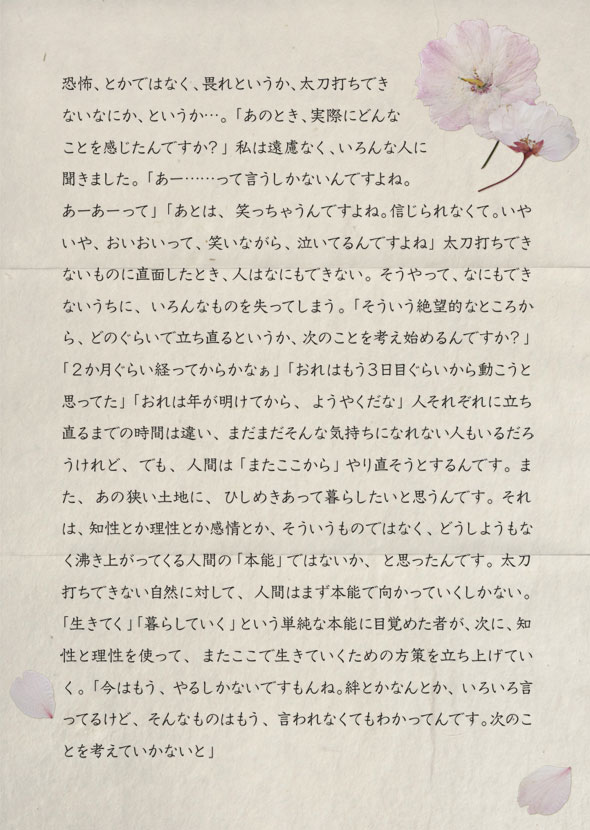 恐怖、とかではなく、畏れというか、太刀打ちでき
ないなにか、というか…。「あのとき、実際にどんな
ことを感じたんですか？」私は遠慮なく、いろんな人に
聞きました。「あー……って言うしかないんですよね。
あーあーって」「あとは、笑っちゃうんですよね。信じられなくて。いや
いや、おいおいって、笑いながら、泣いてるんですよね」太刀打ちでき
ないものに直面したとき、人はなにもできない。そうやって、なにもでき
ないうちに、いろんなものを失ってしまう。「そういう絶望的なところか
ら、どのぐらいで立ち直るというか、次のことを考え始めるんですか？」
「２か月ぐらい経ってからかなぁ」「おれはもう３日目ぐらいから動こうと
思ってた」「おれは年が明けてから、ようやくだな」人それぞれに立ち
直るまでの時間は違い、まだまだそんな気持ちになれない人もいるだろ
うけれど、でも、人間は「またここから」やり直そうとするんです。ま
た、あの狭い土地に、ひしめきあって暮らしたいと思うんです。それ
は、知性とか理性とか感情とか、そういうものではなく、どうしようもな
く沸き上がってくる人間の「本能」ではないか、と思ったんです。太刀
打ちできない自然に対して、人間はまず本能で向かっていくしかない。
「生きてく」「暮らしていく」という単純な本能に目覚めた者が、次に、知
性と理性を使って、またここで生きていくための方策を立ち上げてい
く。「今はもう、やるしかないですもんね。絆とかなんとか、いろいろ言
ってるけど、そんなものはもう、言われなくてもわかってんです。次のこ
とを考えていかないと」